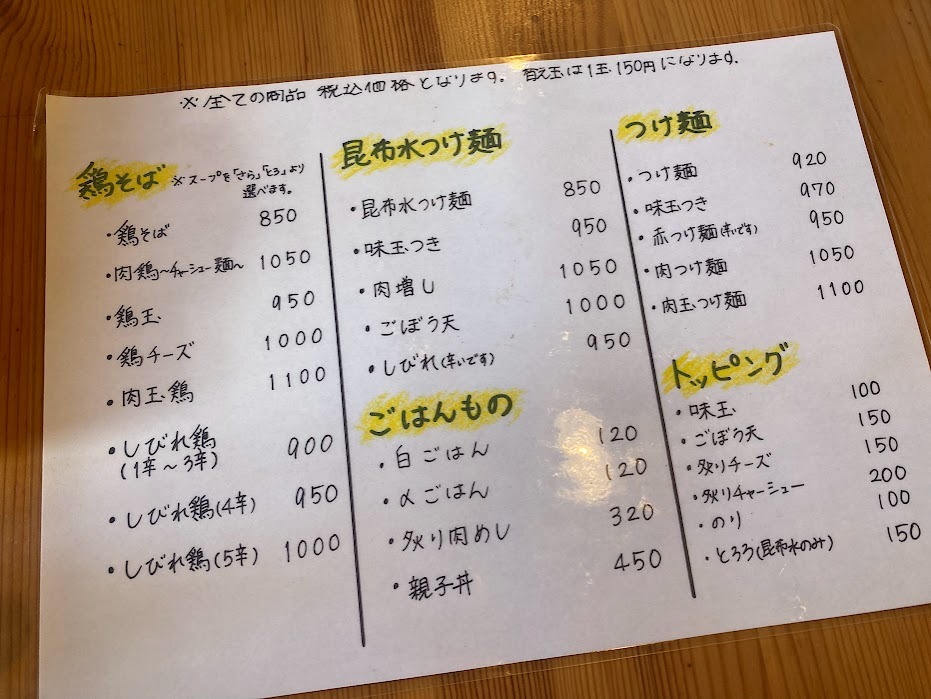 ※全ての商品 税込価格となります。 替え玉は1玉150円になります。
鶏そば ※スープを「さら」「とろ」より
選べます。
・鶏そば 850
・肉鶏〜チャーシュー麺〜 1050
・鶏玉 950
・鶏チーズ 1000
・肉玉鶏 1100
・しびれ鶏 900
(1辛〜3辛)
・しびれ鶏(4辛) 950
・しびれ鶏(5辛) 1000
昆布水つけ麺
・昆布水つけ麺 850
・味玉つき 950
・肉増し 1050
・ごぼう天 1000
・しびれ(辛いです) 950
ごはんもの
・白ごはん 120
・〆ごはん 120
・炙り肉めし 320
・親子丼 450
つけ麺
・つけ麺 920
・味玉つき 970
・赤つけ麺(辛いです) 950
・肉つけ麺 1050
・肉玉つけ麺 1100
トッピング
・味玉 100
・ごぼう天 150
・炙りチーズ 150
・炙りチャーシュー 200
・のり 100
・とろろ(昆布水のみ) 150